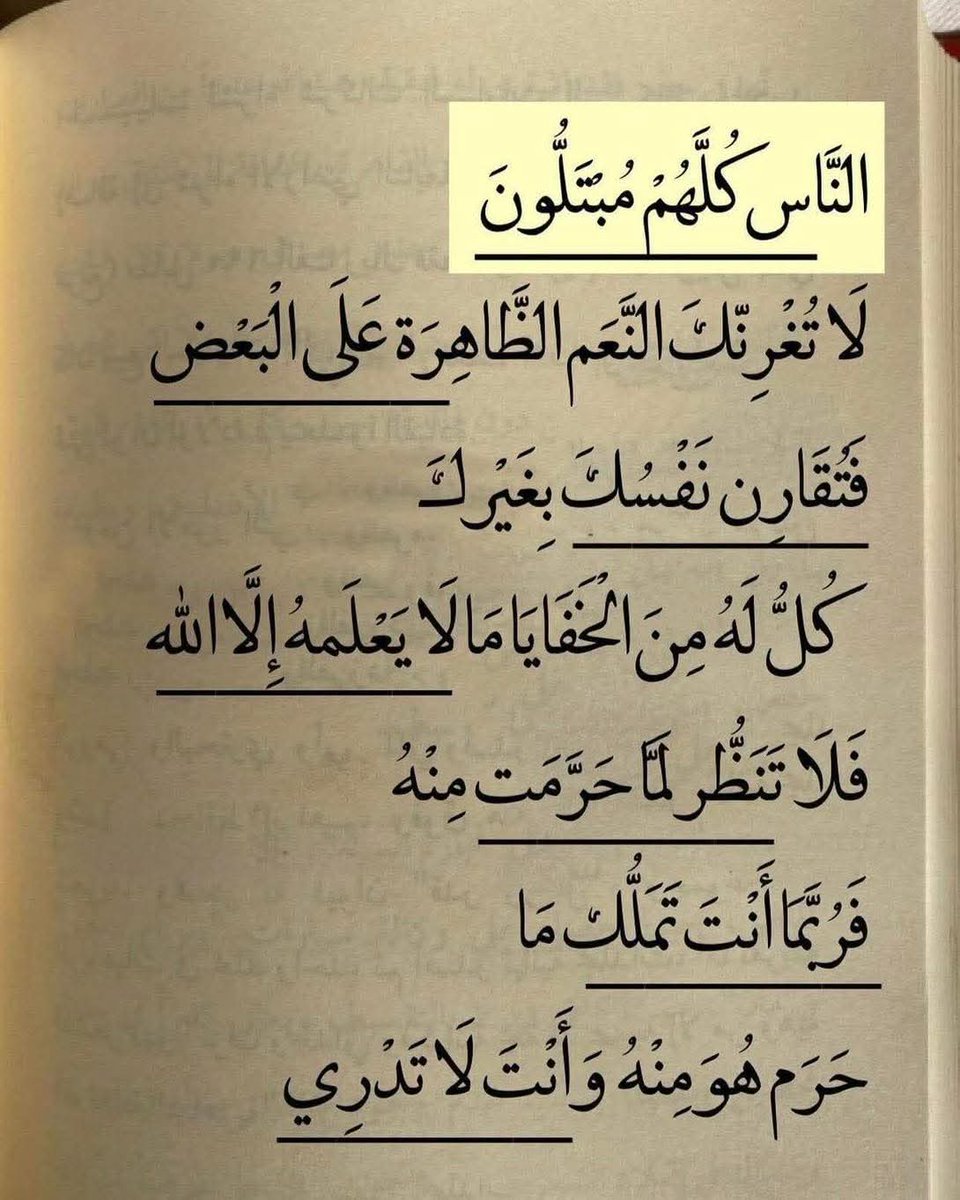 النَّاس كُلَّهُمْ مُبْتَلُّونَ
لَا تُغْرِنّكَ النَّعَم الظَّاهِرَة عَلَى الْبَعْض
فَتُقَارِن نَفْسُكَ بِغَيْرِكَ
كُلُّ لَهُ مِنَ الْخَفَايَا مَا لَا يَعْلَمهُ إِلَّا الله
فَلَا تَنَظُّر لَمَّا حَرَّمَت مِنْهُ
فَرُبَّمَا أَنْتَ تَمَلُّكَ مَا
حَرَم هُوَ مِنْهُ وَأَنْتَ لَا تَدْرِي